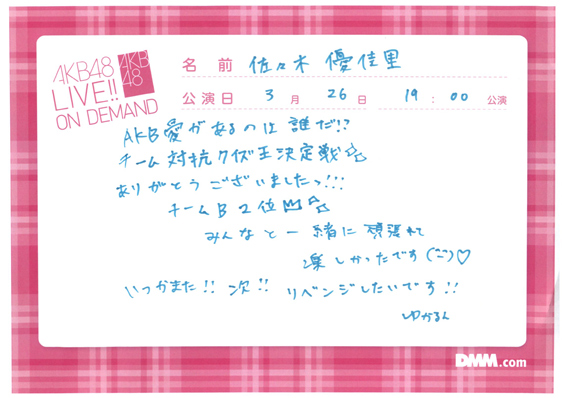 AKB48
LIVE!!
ON DEMAND
AKB
48
名前 佐々木 優佳里
公演日 3月26日 19:00公演
AKB愛があるのは誰だ!?
チーム対抗クイズ王決定戦☆
ありがとうございましたっ!!!
チームB2位
みんなと一緒に頑張れて
楽しかったです(¨)♡
いつかまた!! 次!! リベンジしたいです!!
ゆかるん
DMM.com